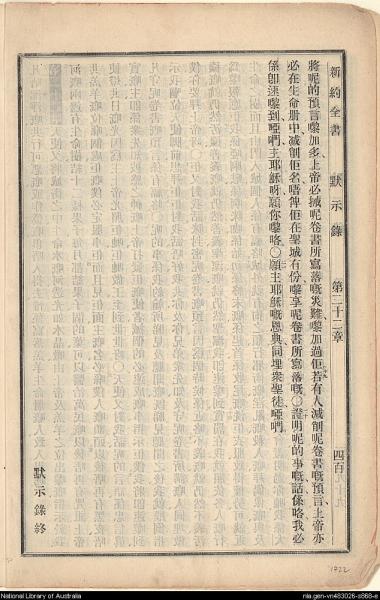 新約全書　默示錄　第二十二章　四百九十九
將呢的預言嚟加多上帝必搣呢卷書所寫落嘅災難嚟加過佢若有人減削呢卷書嘅預言上帝亦
必在生命册中減削佢名唔俾佢在聖城有份嚟享呢卷書所寫落嘅〇證明呢的事嘅話係咯我必
係卽速嚟到啞們主耶穌呀願你嚟咯〇願主耶穌嘅恩典同埋衆聖徒啞們
默示錄終
1922
National Library of Australia
nla.gen-vn483026-s868-e